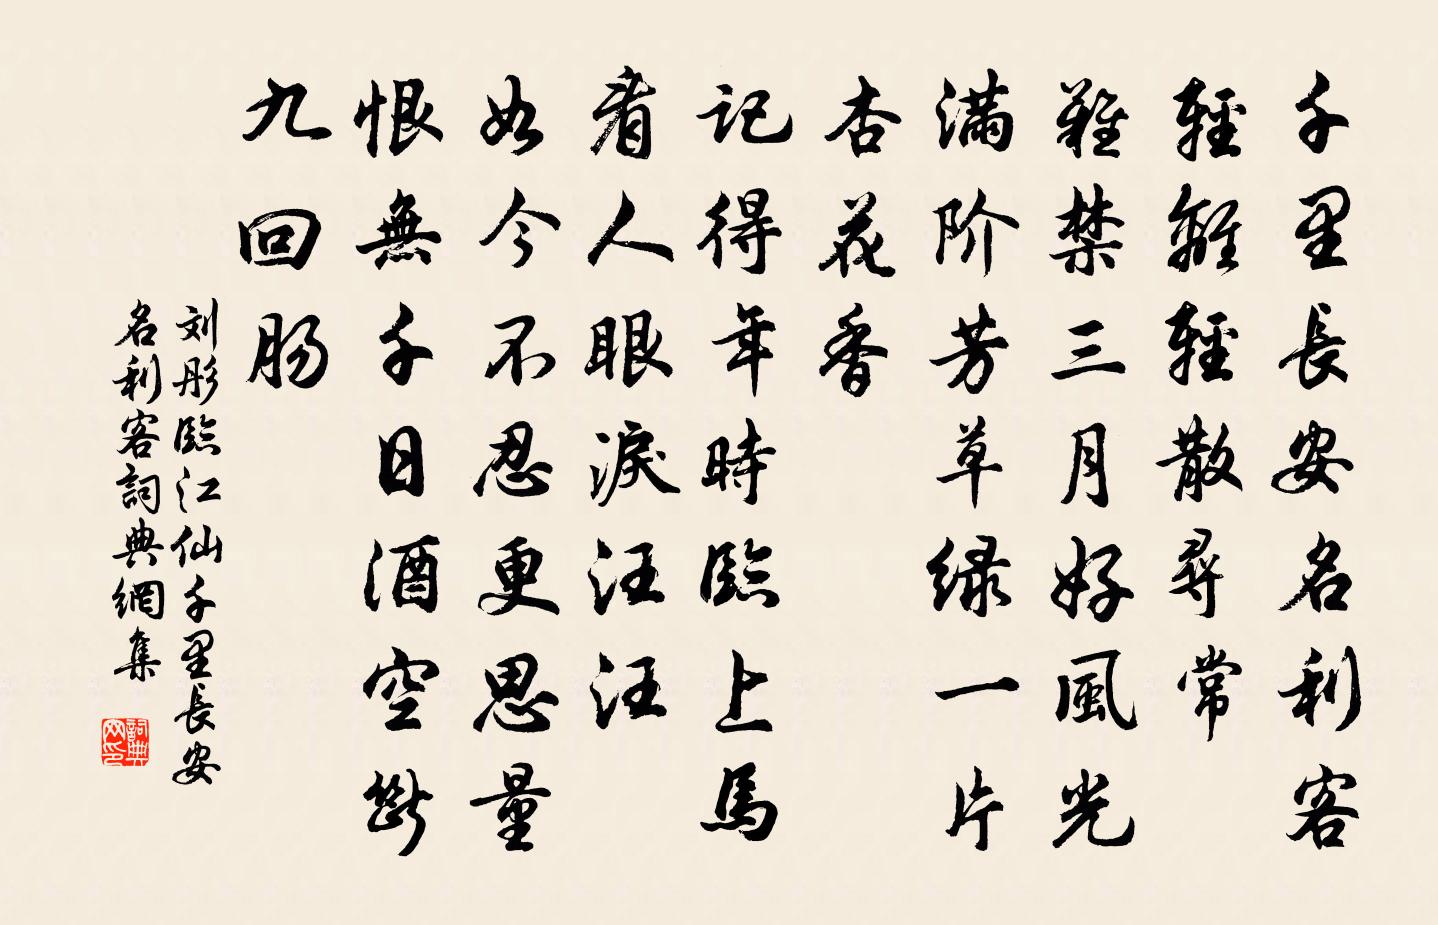 千里長安名利客
輕離輕散尋常
難禁三月好風光
满阶芳草绿一片
杏花香
记得年時臨上馬
看人眼淚汪汪
如今不忍更思量
恨無千日酒空斷
九回肠
刘彤臨江仙千里長安
名利客詞典網集
詞典
网印